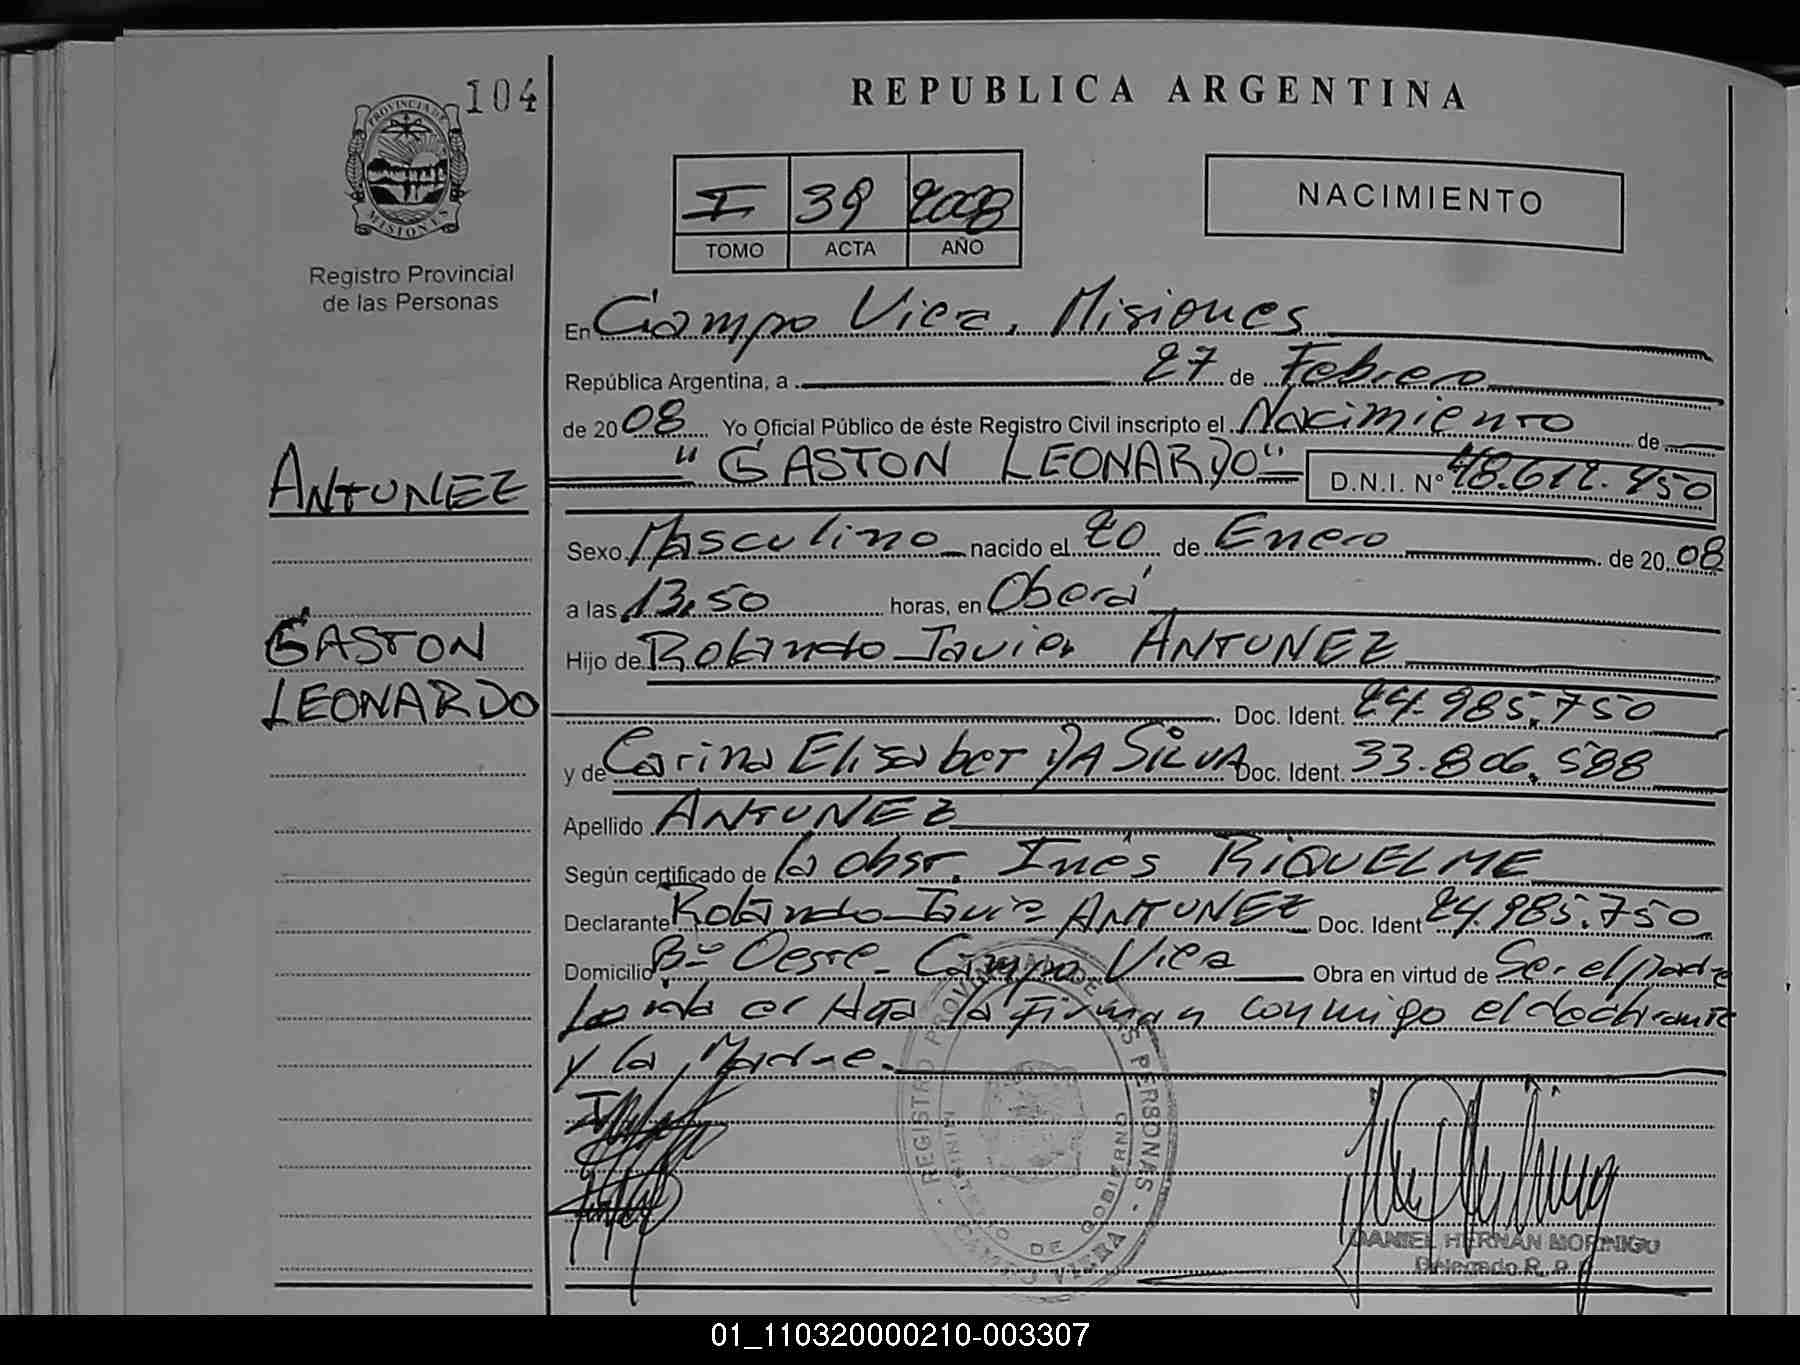 104
PROVINCIA DE
MISIONES
Registro Provincial
de las Personas
ANTUNEZ
GASTON
LEONARDO
REPUBLICA ARGENTINA
I 39 2008
TOMO ACTA AÑO
NACIMIENTO
En Campo Viera, Misiones
República Argentina, a 27 de Febrero
de 2008 Yo Oficial Público de éste Registro Civil inscripto el Nacimiento de
"GASTON LEONARDO" D.N.I. Nº 48.612.450
Sexo Masculino nacido el 20 de Enero de 2008
a las 13,50 horas, en Oberá
Hijo de Rolando Javier ANTUNEZ
Doc. Ident. 24.985.750
y de Carina Elisabet DA SILVA Doc. Ident. 33.806.588
Apellido ANTUNEZ
Según certificado de la obst. Inés RIQUELME
Declarante Rolando Javier ANTUNEZ Doc. Ident 24.985.750
Domicilio Bº Oeste - Campo Viera Obra en virtud de Ser el padre
Leida el Acta la firman conmigo el declarante
y la Madre.
REGISTRO PROVINCIAL DE LAS PERSONAS
MINISTERIO DE GOBIERNO
CAMPO VIERA
DANIEL HERNAN MORINIGO
Delegado R. P. P.
01_110320000210-003307